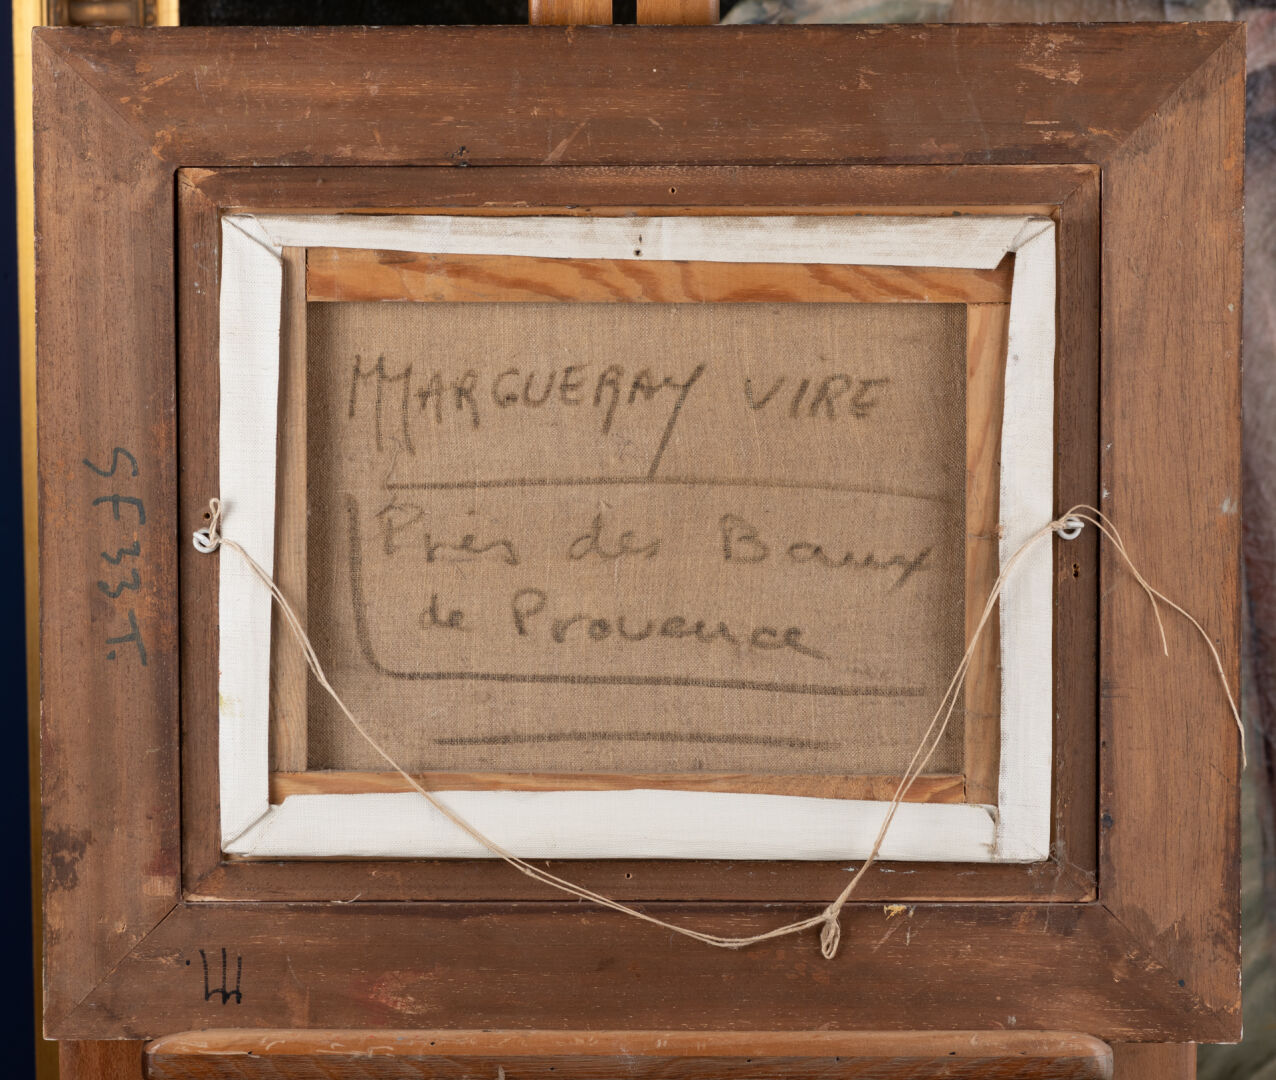 MMARGUERAY VIRE
Près des Baux
de Provence
SF33T.